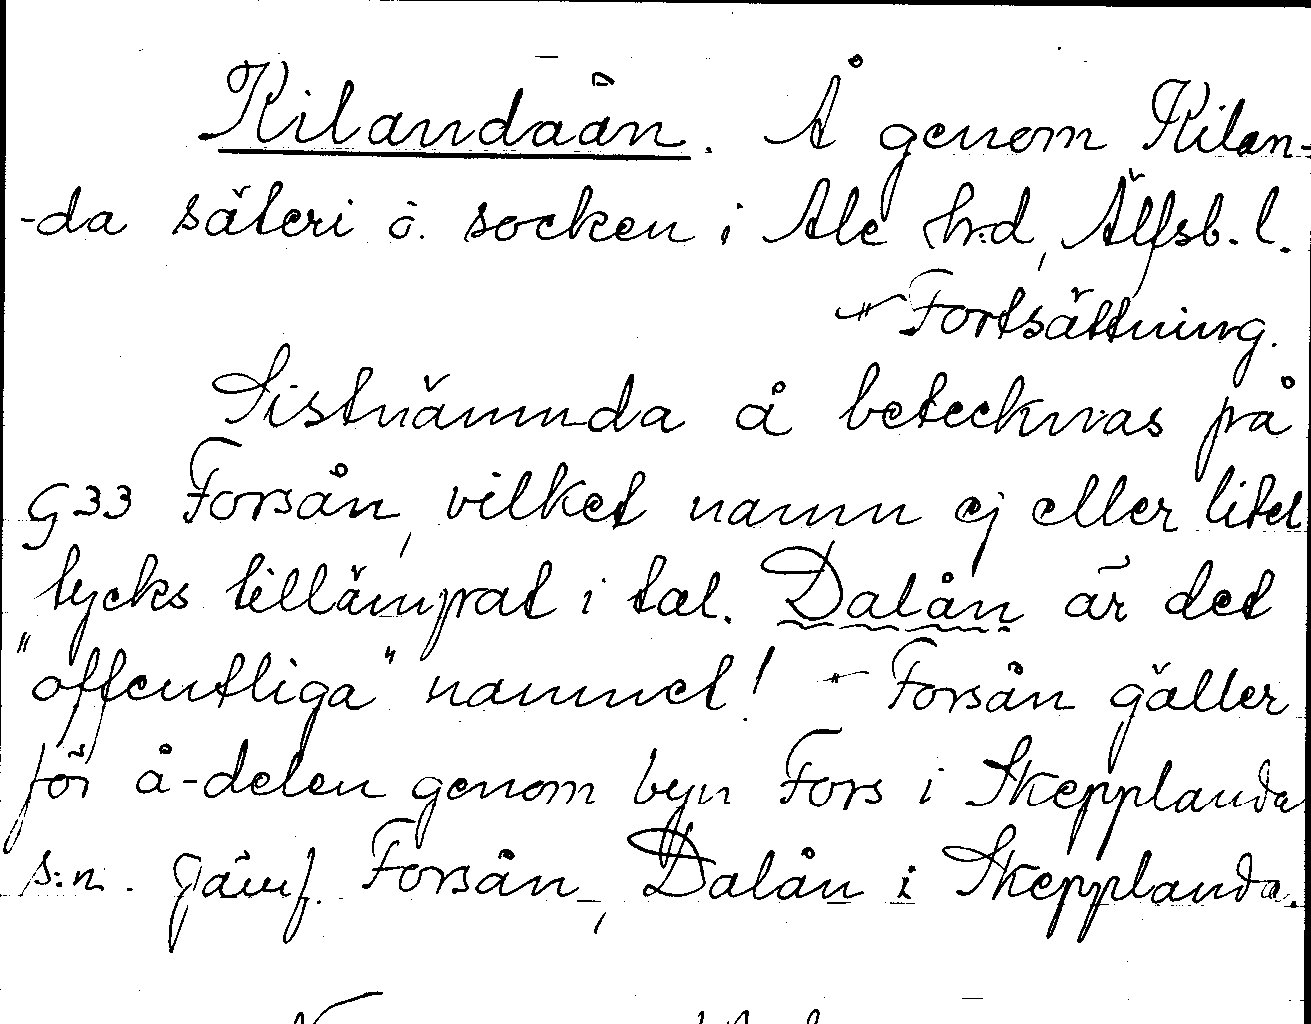 Kilandaån. Å genom Kilan-
-da säteri o. socken i Ale h:d, Älfsb. l.
- Fortsättning.
Sistnämnda å betecknas på
G33 Forsån, vilket namn ej eller litet
tycks tillämpat i tal. Dalån är det
"offentliga" namnet! - Forsån gäller
för å-delen genom byn Fors i Skepplanda
s:n. Jämf. Forsån, Dalån i Skepplanda.